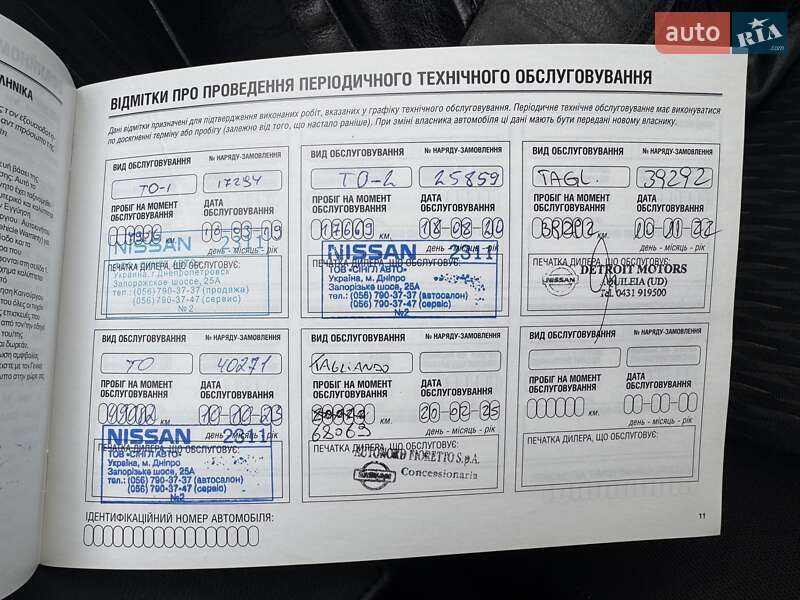 auto RIA.com
ΛΗΝΙΚΑ
ВІДМІТКИ ПРО ПРОВЕДЕННЯ ПЕРІОДИЧНОГО ТЕХНІЧНОГО ОБСЛУГОВУВАННЯ
Дані відмітки призначені для підтвердження виконаних робіт, вказаних у графіку технічного обслуговування. Періодичне технічне обслуговування має виконуватися
по досягненні терміну або пробігу (залежно від того, що настало раніше). При зміні власника автомобіля ці дані мають бути передані новому власнику.
ВИД ОБСЛУГОВУВАННЯ № НАРЯДУ-ЗАМОВЛЕННЯ
ТО-1 17294
ПРОБІГ НА МОМЕНТ ОБСЛУГОВУВАННЯ
ДАТА ОБСЛУГОВУВАННЯ
NISSAN 2311
ПЕЧАТКА ДИЛЕРА, ЩО ОБСЛУГОВУЄ:
Украина г.Днепропетровск
Запорожское шоссе, 25А
тел.:(056) 790-37-37 (продажа)
(056) 790-37-47 (сервис)
№2
ВИД ОБСЛУГОВУВАННЯ № НАРЯДУ-ЗАМОВЛЕННЯ
ТО-2 25859
ПРОБІГ НА МОМЕНТ ОБСЛУГОВУВАННЯ
ДАТА ОБСЛУГОВУВАННЯ
17669 18-08-20
день - місяць - рік
NISSAN 2311
ТОВ "СІНГЛ АВТО"
Україна, м. Дніпро
Запорізьке шосе, 25А
тел.: (056) 790-37-37 (автосалон)
(056) 790-37-47 (сервіс)
№2
ВИД ОБСЛУГОВУВАННЯ № НАРЯДУ-ЗАМОВЛЕННЯ
TAGL. 39292
ПРОБІГ НА МОМЕНТ ОБСЛУГОВУВАННЯ
ДАТА ОБСЛУГОВУВАННЯ
10-11-22
км. день - місяць - рік
ПЕЧАТКА ДИЛЕРА, ЩО ОБСЛУГОВУЄ:
NISSAN DETROIT MOTORS
AQUILEIA (UD)
Tel. 0431 919500
ВИД ОБСЛУГОВУВАННЯ № НАРЯДУ-ЗАМОВЛЕННЯ
ТО 40271
ПРОБІГ НА МОМЕНТ ОБСЛУГОВУВАННЯ
ДАТА ОБСЛУГОВУВАННЯ
км.
день - місяць - рік
NISSAN 2311
ТОВ "СІНГЛ АВТО"
Україна, м. Дніпро
Запорізьке шосе, 25А
тел.: (056) 790-37-37 (автосалон)
(056) 790-37-47 (сервіс)
№2
ВИД ОБСЛУГОВУВАННЯ № НАРЯДУ-ЗАМОВЛЕННЯ
TAGLIANDO
ПРОБІГ НА МОМЕНТ ОБСЛУГОВУВАННЯ
ДАТА ОБСЛУГОВУВАННЯ
20-02-25
68963 км. день - місяць - рік
ПЕЧАТКА ДИЛЕРА, ЩО ОБСЛУГОВУЄ:
AUTONORD FIORETTO S.p.A.
NISSAN Concessionaria
ВИД ОБСЛУГОВУВАННЯ № НАРЯДУ-ЗАМОВЛЕННЯ
ПРОБІГ НА МОМЕНТ ОБСЛУГОВУВАННЯ
ДАТА ОБСЛУГОВУВАННЯ
км. день - місяць - рік
ПЕЧАТКА ДИЛЕРА, ЩО ОБСЛУГОВУЄ:
ІДЕНТИФІКАЦІЙНИЙ НОМЕР АВТОМОБІЛЯ:
11